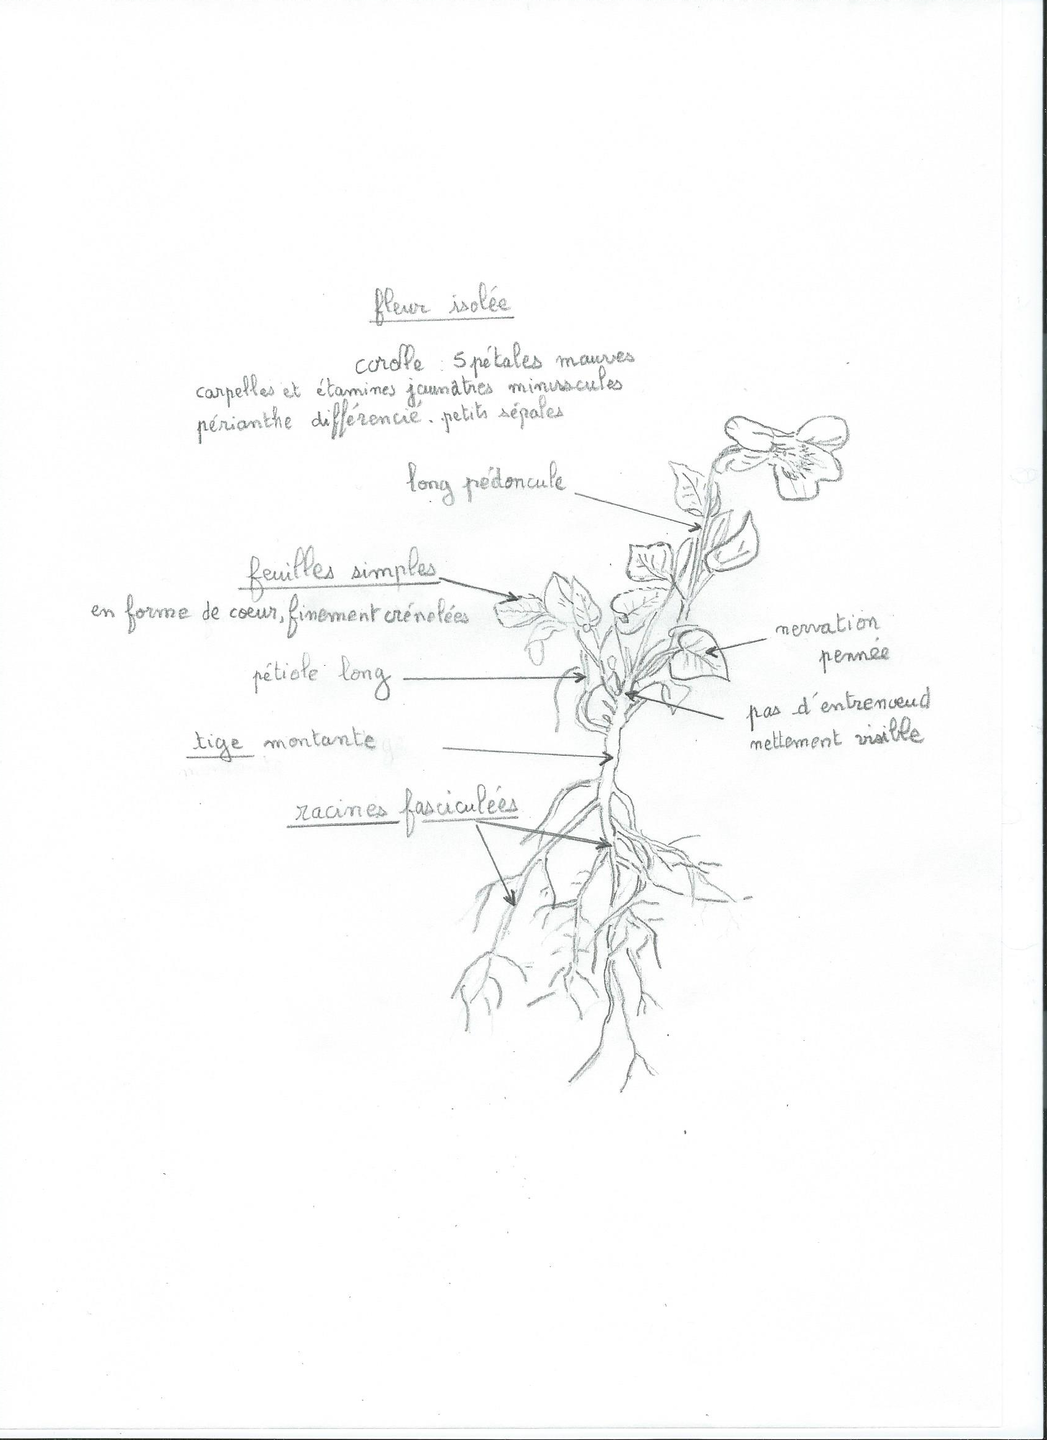 fleur isolée
corolle : 5 pétales mauves
carpelles et étamines jaunâtres minuscules
périanthe différencié. petits sépales
long pédoncule
feuilles simples
en forme de coeur, finement crénelées
nervation
pennée
pétiole long
pas d'entrenœud
nettement visible
tige montante
racines fasciculées